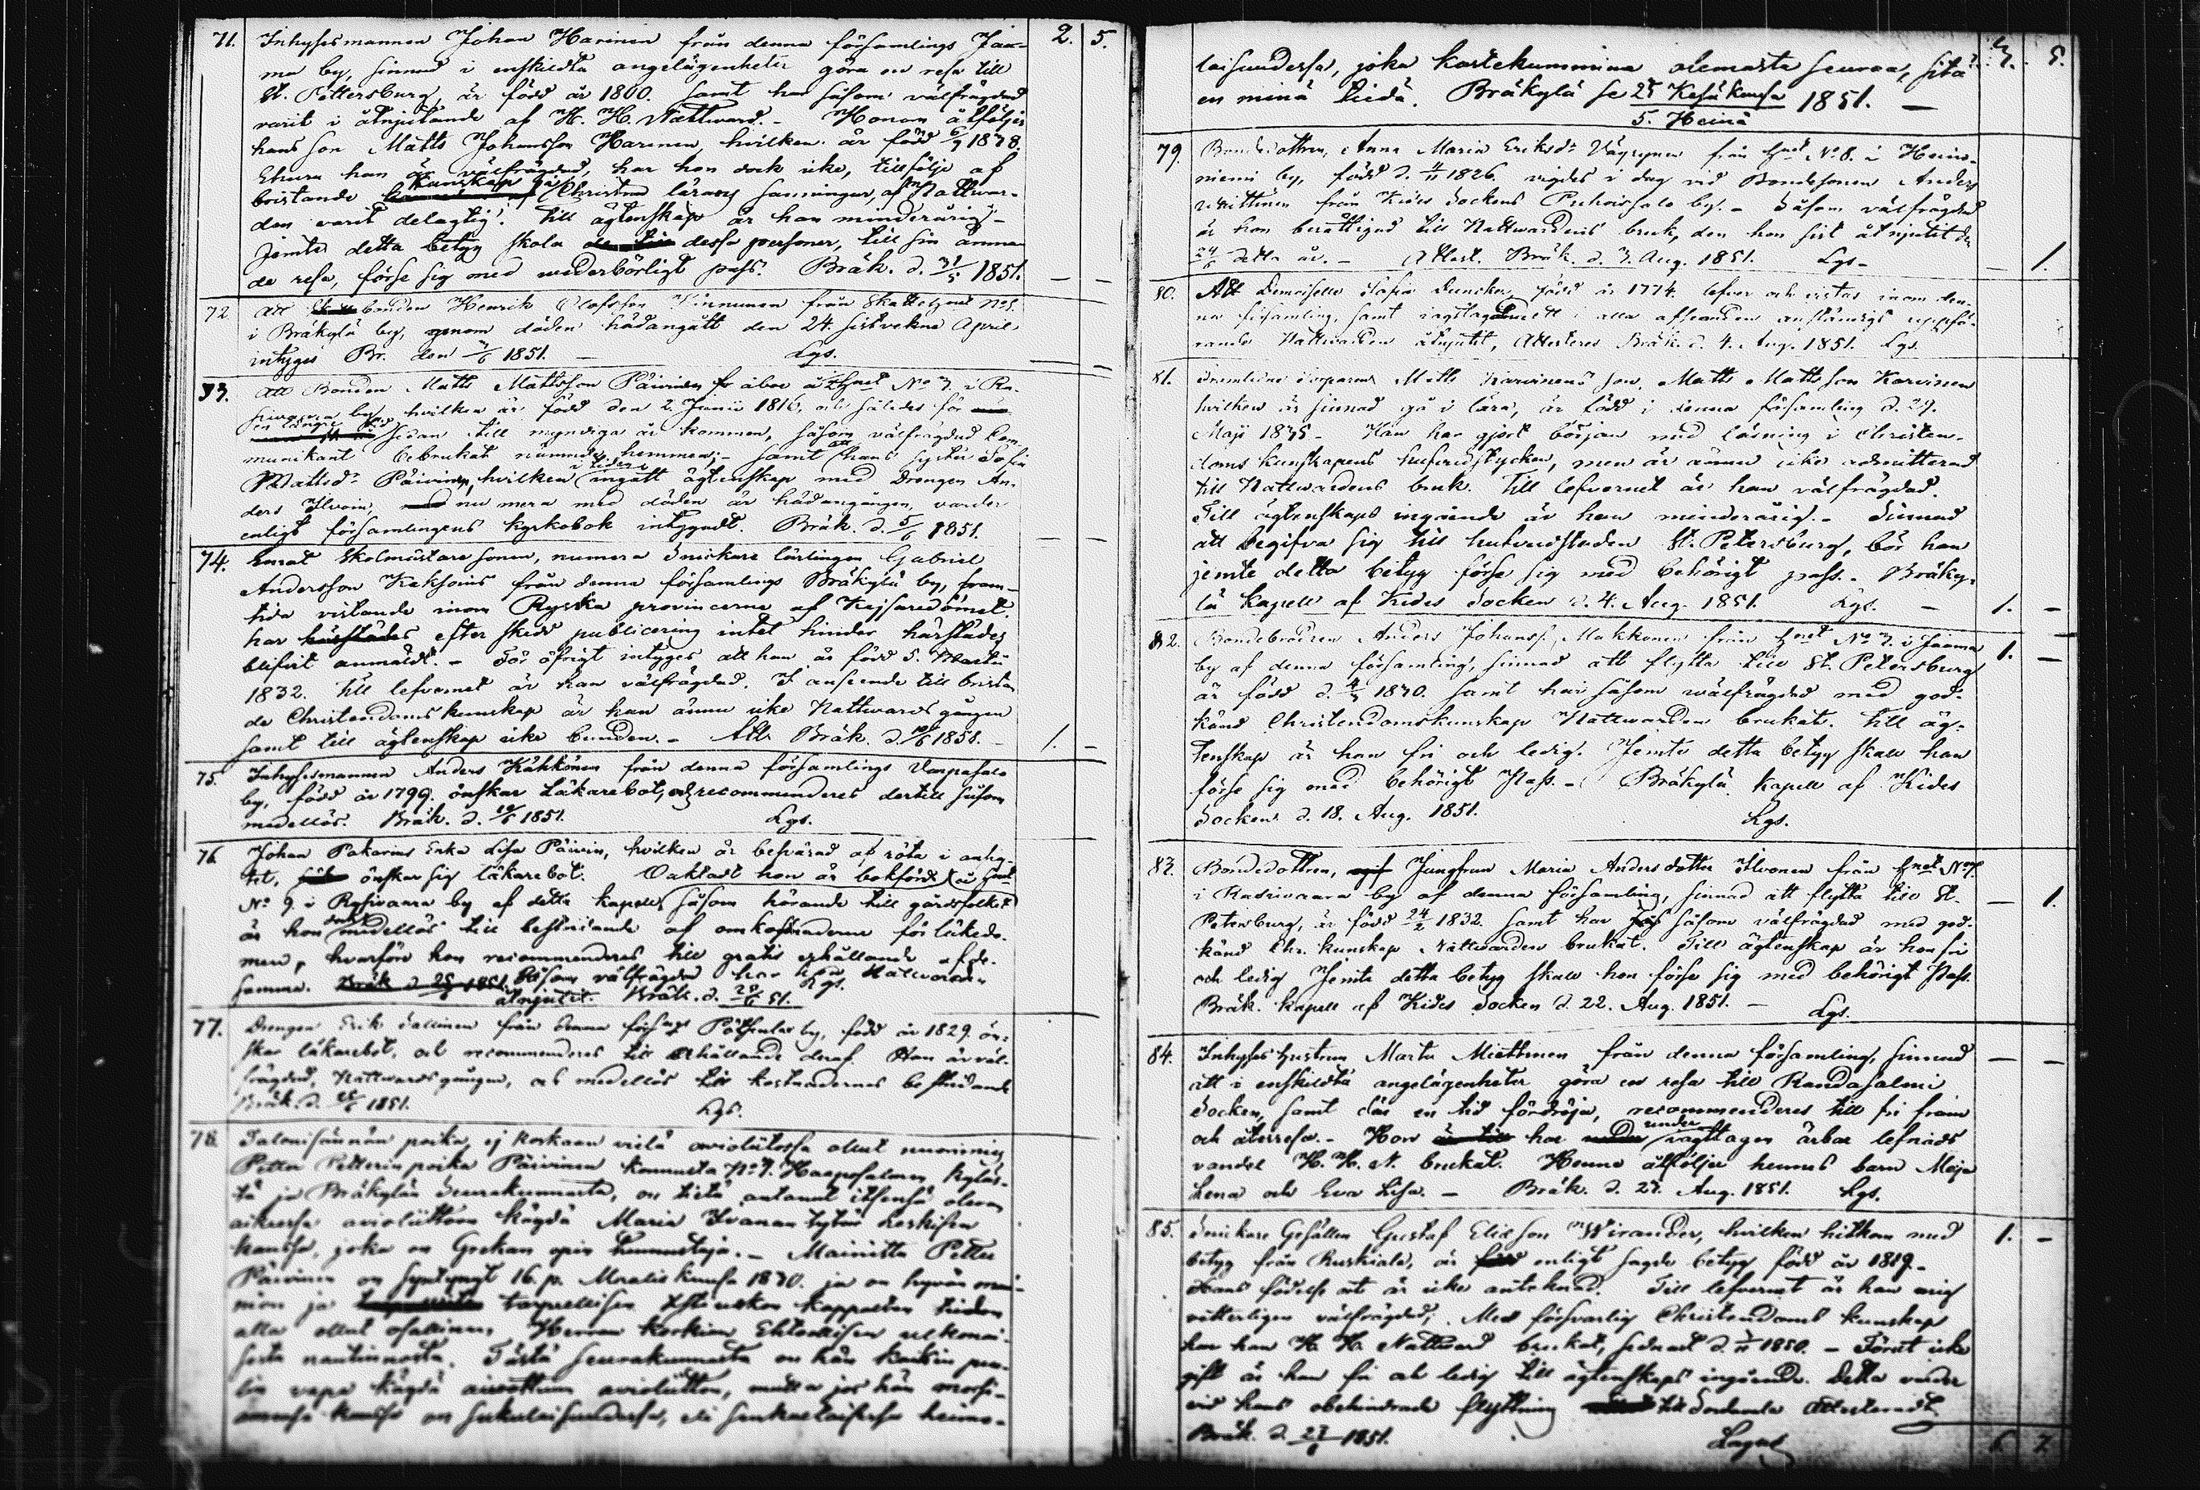 71. Inhysesmannen Johan Harinen från denna församlings Jaa- 2. 5.
ma by, sinnad i enskildta angelägenheter göra en resa till
St. Pettersburg, är född år 1800. samt har såsom välfrägdad
varit i åtnjutande af H. H. Nattward. - Honom åtföljer
hans son Matts Johansson Harinen, hvilken är född 6/7 1838.
Ehuru han är välfrägdad, har han dock icke, tillfölje af
bristande kunskap i Christna lärans sanningar, af Nattwar-
den varit delagtig. Till ägtenskap är han minderårig. -
Jemte detta betyg skola dessa personer, till sin ämna-
de resa, förse sig med wederbörligt pass. Bräk. d. 31/5 1851. — —
72 att bonden Henrik Olofsson Kinnunen från Skattehemt No 5.
i Bräkylä by, genom döden hädangått den 24. sistvekne April
intygas Br. den 3/6 1851. — Lgs. — —
73. Att Bonden Matts Mattsson Päivinen åbor å Hemt No 3 i Ra-
sivaara by, hvilken är född den 2. Junii 1816, och således för
en längre tid sedan till myndiga år kommen, såsom välfrägdad kom-
munikant bebrukat nämnde hemman; - samt att hans syster Sofia
Mattsdr Päivinen, hvilken i tiden ingått ägtenskap med Drengen An-
ders Ilvoin, nu mera med döden är hädangången, varder
enligt församlingens kyrkobok intygadt. Bräk. d. 5/6 1851. — —
74. Emot Skolmästare sonen, numera Snickare lärlingen Gabriel
Andersson Keksonius från denna församlings Bräkylä by, fram-
tida vistande inom Ryska provincerne af Kejsaredömet.
har efter skedd publicering intet hinder härstädes
blifvit anmäldt. - För öfrigt intyges att han är född 5. Martii
1832. Till lefvernet är han välfrägdad. I anseende till bristan-
de Christendomskunskap är han ännu icke Nattwards gången
samt till ägtenskap icke bunden. - Att. Bräk. d. 10/6 1851. — 1. —
75. Inhysesmannen Anders Kähkönen från denna församlings Varpasalo
by, född år 1799. önskar Läkarebot, och recommenderes dertill såsom
medellös. Bräk. d. 10/6 1851. Lgs.
76 Johan Pakarins Enka Lisa Päivin, hvilken är besvärad af röta i ansig-
tet, önskar sig läkarebot. Oaktadt hon är bokförd å Hemt
No 9 i Rasivaara by af detta kapell, såsom hörande till gårdsfolket
är hon dock medellös till bestridande af omkostnaderne för läkedo-
men, hvarföre hon recommenderes till gratis erhållande af de-
samma. Såsom välfrägdad har hon Nattwarden
åtnjutit. Bräk. d. 25/6 51. Lgs.
77. Drengen Erik Sallinen från denna förs:gs Potsenlax by, född år 1829. ön-
skar läkarebot, och recommenderes till erhållande deraf. Han är väl-
frägdad, Nattwards gången, och medellös till kostnadernas bestridande
Bräk. d. 25/6 1851. Lgs.
78. Talonisännän poika, ej koskaan vielä aviolütossa ollut nuorimies
Petter Petterin poika Päivinen konnusta No 7. Haapasalmen kyläs-
tä ja Bräkylän Seurakunnasta, on tietä antanut itsensä olevan
aikeessa avioliittoon käydä Maria Ivanan tytär Leskisen
kanssa, joka on Grekan opin tunnustaja. - Mainittu Petter
Päivinen on syntynyt 16. p. Maalis kuussa 1830. ja on hyvän mai-
nion ja tarpeellisen
alla ollut osallinen Herran korkian Ehtoollisen
sesta nautinnosta. Tästä Seurakunnasta on hän
lin vapa käydä avioliitton, mutta jos hän morsi-
ammensa kanssa on sukulaisuudessa, eli heimo-
laisuudessa, joka kartekummina olemasta seuraa, sitä 3. 5.
en minä tiedä. Bräkylä se 25 Kesäkuusa / 5. Heinä 1851. —
79. Bondedottren, Anna Maria Eriksdr Väyrynen från Hemt No 8. i Heinä-
niemi by, född d. 4/11 1826. vigdes i dag vid Bondesonen Anders
Miettinen från Kides Sockens Puhoissalo by. - Såsom välfrägdad
är hon berättigad till Nattwardens bruk, den hon sist åtnjutit den
24/6 detta år. - Attest. Bräk. d. 3. Aug. 1851. Lgs - — 1.
80. Att Demoiselle Sofia Duncker, född år 1774. lefver och vistas inom den-
na församling, samt iagttagit ett i alla afseenden anständigt uppfö-
rande Nattwarden åtnjutit, Attesteres Bräk. d. 4. Aug. 1851. Lgs.
81. Matts Karvinens son, Matts Mattsson Karvinen
hvilken är sinnad gå i lära, är född i denna församling d. 29.
Maji 1835 - Han har gjort början med läsning i Christen-
doms kunskapens hufvudstycken, men är ännu icke admitterad
till Nattwardens bruk. Till lefvernet är han välfrägdad.
Till ägtenskaps ingående är han minderårig. - Sinnad
att begifva sig till hufvudstaden St. Petersburg, bör han
jemte detta betyg förse sig med behörigt pass. - Bräky-
lä kapell af Kides Socken d. 4. Aug. 1851. Lgs. — 1. —
82. Bondebrodren Anders Johanss. Makkonen från Hemt No 3. i Jaama 1. —
by af denna församling, sinnad att flytta till St. Petersburg
är född d. 4/3 1830. samt har såsom wälfrägdad med god-
känd Christendomskunskap Nattwarden brukat. Till äg-
tenskap är han fri och ledig. Jemte detta betyg skall han
förse sig med behörigt Pass. - Bräkylä kapell af Kides
Socken d. 18. Aug. 1851. Lgs.
83. Bondedottren, Jungfrun Maria Andersdotter Ilvonen från Hemt No 7.
i Rasivaara by af denna församling, sinnad att flytta till St. — 1.
Petersburg, är född 24/2 1832. samt har såsom välfrägdad med god-
känd Chr. kunskap Nattwarden brukat. Till ägtenskap är hon fri
och ledig Jemte detta betyg skall hon förse sig med behörigt Pass.
Bräk. kapell af Kides Socken d. 22. Aug. 1851. — Lgs.
84. Inhyses hustrun Marta Miettinen från denna församling, sinnad — —
att i enskildta angelägenheter göra en resa till Randasalmi
Socken, samt der en tid fördröja, recommenderes till fri fram
och återresa. - Hon har under iagttagen ärbar lefnads
vandel H. H. N. brukat. Henne åtföljer hennes barn Maja
Lena och Eva Lisa. — Bräk. d. 27. Aug. 1851. Lgs.
85. Snickare Gesällen Gustaf Eliæson Wirander, hvilken hitkom med 1. —
betyg från Ruskiala, är enligt sagde betyg född år 1819. -
Hans födelse ort är icke antecknad. Till lefvernet är han mig
vitterligen välfrägdad; Med försvarlig Christendoms kunskap
har han H. H. Nattward brukat, sednast d. 1850. - Förut icke
gift är han fri och ledig till ägtenskaps ingående. Detta varder
vid hans obehindrade flyttning till Sordavala Attesteradt
Bräk. d. 27/8 1851. Lagus 6. 7.